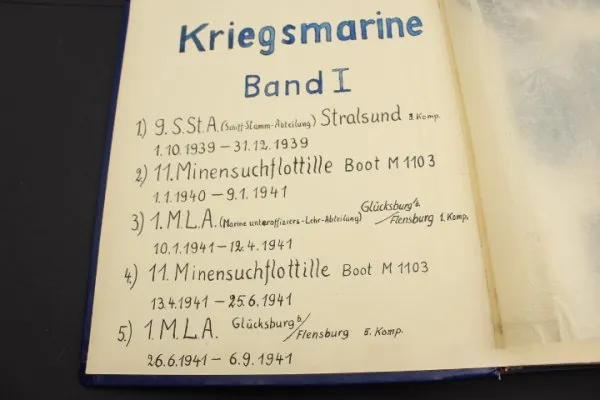 Kriegsmarine
Band I
1) 9. S.St.A. (Schiff-Stamm-Abteilung) Stralsund 3. Komp.
1.10.1939 – 31.12.1939
2) 11. Minensuchflottille Boot M 1103
1.1.1940 – 9.1.1941
3) 1. M.L.A. (Marine unteroffiziers-Lehr-Abteilung) Glücksburg b./Flensburg 1. Komp.
10.1.1941 – 12.4.1941
4.) 11. Minensuchflottille Boot M 1103
13.4.1941 – 25.6.1941
5.) 1. M.L.A. Glücksburg b/Flensburg 5. Komp.
26.6.1941 – 6.9.1941